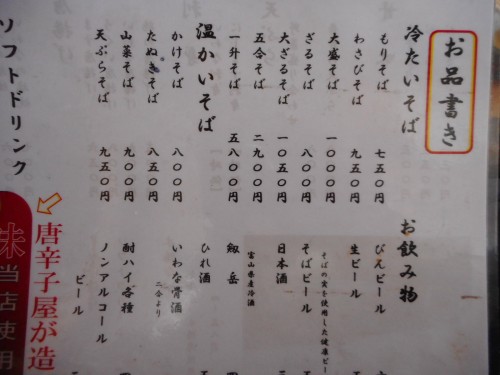 お品書き
冷たいそば
もりそば 七五〇円
わさびそば 九五〇円
大盛そば 一〇〇〇円
ざるそば 八〇〇円
大ざるそば 一〇五〇円
五合そば 二九〇〇円
一升そば 五八〇〇円
温かいそば
かけそば 八〇〇円
たぬきそば 八五〇円
山菜そば 九〇〇円
天ぷらそば 九五〇円
ソフトドリンク
お飲み物
びんビール
生ビール
そばの実を使用した健康ビー
そばビール
日本酒
富山県産冷酒
剱岳
ひれ酒
いわな骨酒
二合より
酎ハイ各種
ノンアルコール
ビール
唐辛子屋が造
味
当店使用